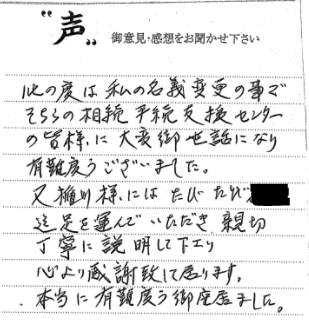 "声" 御意見・感想をお聞かせ下さい
此の度は私の名義変更の事で
そちらの相続手続支援センター
の皆様に大変御世話になり
有難度うございました。
又 様にはたびたび
迄足を運んでいただき親切
丁寧に説明して下さり
心より感謝致して居ります。
本当に有難度う御座居ました。